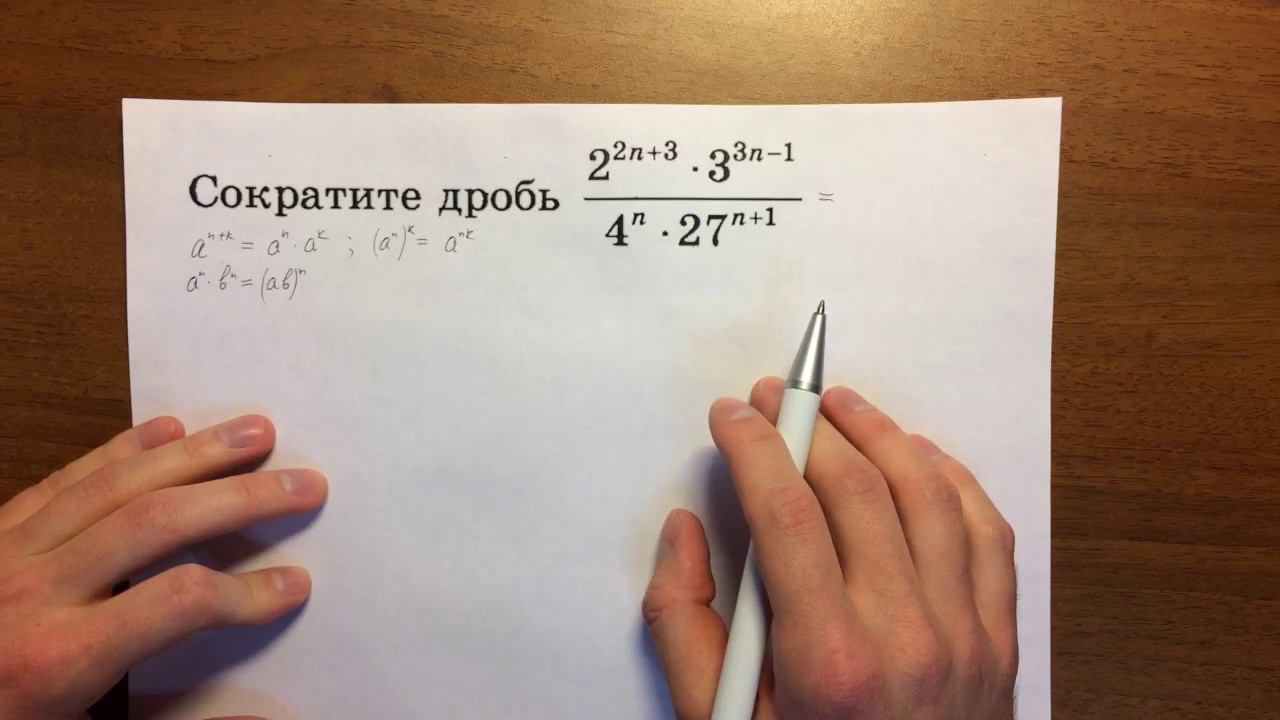 Сократите дробь \frac{2^{2n+3} \cdot 3^{3n-1}}{4^n \cdot 27^{n+1}} =
a^{n+k} = a^n \cdot a^k ; (a^n)^k = a^{nk}
a^n \cdot b^n = (ab)^n